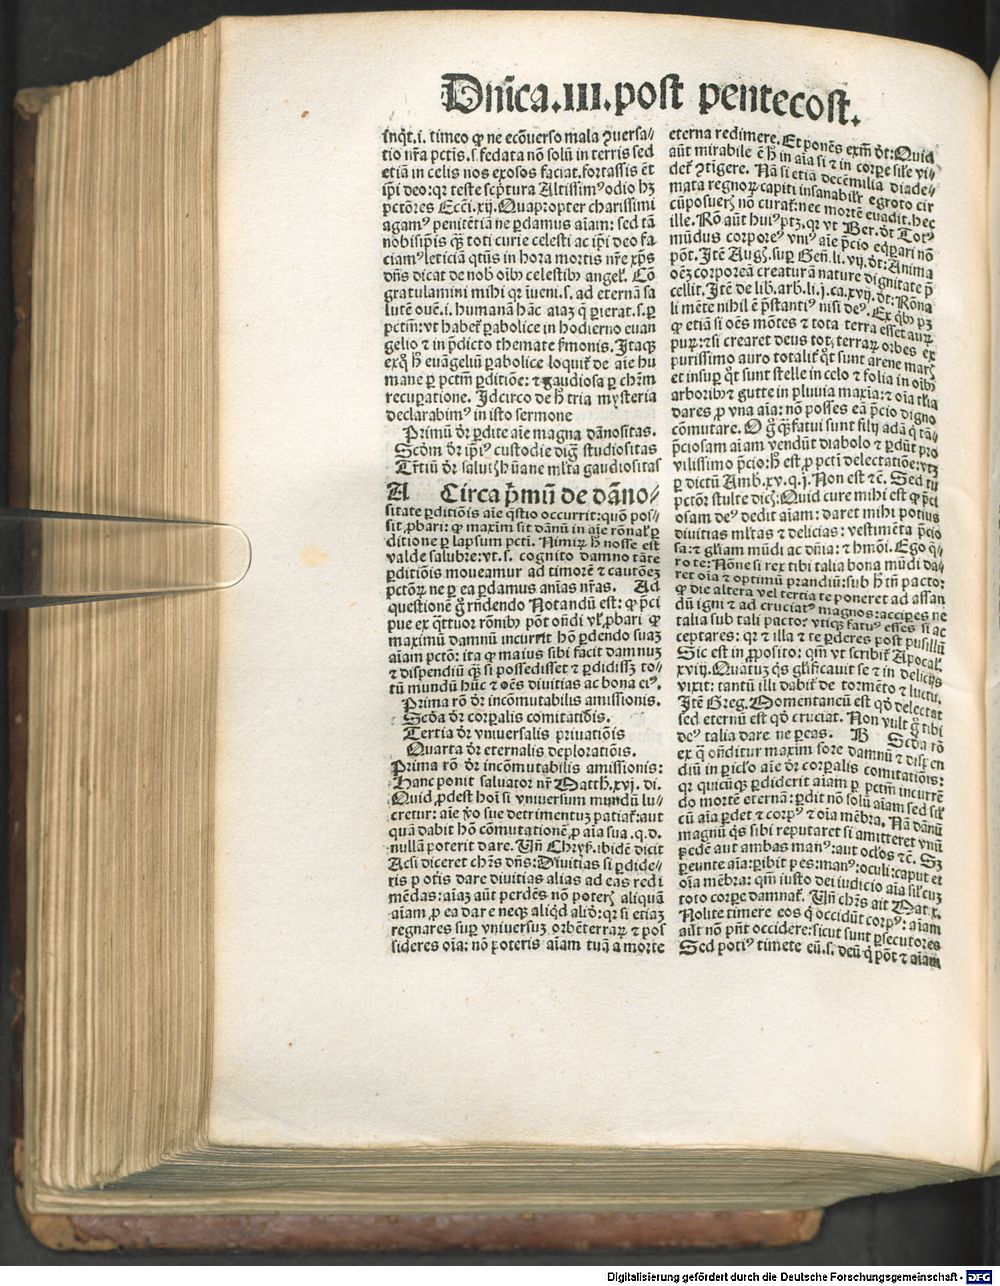 Dñica.III.post pentecost.
inq̄t.i. timeo ꝙ ne ecõuerso mala ꝯuersa/
tio nr̃a pctis.s.fedata nõ solũ in terris sed
etiã in celis nos exosos faciat.fortassis et
ip̃i deo:qr teste scp̃tura Altissimꝰ odio hꝫ
pctõres Ecci.xij.Quapropter charissimi
agamꝰ penitētiã ne ꝑdamus aĩam: sed tã
nobisip̃is qꝫ toti curie celesti ac ip̃i deo fa
ciamꝰ leticiã qtũs in hora mortis nr̃e xp̃s
dñs dicat de nob̃ oĩbꝰ celestibꝰ angel̃. Cõ
gratulamini mihi qr ĩueni.s. ad eternã sa
lutē ouē.i. humanã hãc aiaꝫ q̃ ꝑierat.s.ꝑ
pctm̃: vt habet̃ ꝑabolice in hodierno euan
gelio ⁊ in p̃dicto themate ẜmonis. Itaqꝫ
exq̃ h̃ euãgeliũ ꝑabolice loquit̃ de aĩe hu
mane ꝑ pctm̃ ꝑditiõe: ⁊ gaudiosa ꝑ chr̃m
recuꝑatione. Idcirco de h̃ tria mysteria
declarabimꝰ in isto sermone
Primũ dr̃ ꝑdite aĩe magna dãnositas.
Scd̃m dr̃ ip̃iꝰ custodie dig̃ studiositas
Tr̃tiũ dr̃ salutiꝫ hũane ml̃ta gaudiositas
A Circa p̃mũ de dãno/
sitate ꝑditiõis aĩe q̃stio occurrit:quõ pos/
sit ꝓbari: ꝙ maxim̃ sit dãnũ in aĩe rõnal̃ ꝑ
ditione ꝑ lapsum pcti. Nimiꝝ h̃ nosse est
valde salubre:vt.s. cognito damno tãte
ꝑditiõis moueamur ad timorē ⁊ cautõeꝫ
pctõꝝ ne ꝑ ea ꝑdamus animas nr̃as. Ad
questionē g̃ rñdendo Notandũ est: ꝙ p̃ci
pue ex q̃ttuor rõnibꝰ põt oñdi vl̃ ꝓbari ꝙ
maximũ damnũ incurrit hõ ꝑdendo suaꝫ
aĩam pctõ: ita ꝙ maius sibi facit damnuꝫ
⁊ dispendiũ qꝫ si possedisset ⁊ ꝑdidissꝫ to/
tũ mundũ hũc ⁊ oẽs diuitias ac bona eiꝰ.
Prima rõ dr̃ incõmutabilis amissionis.
Scd̃a dr̃ corꝑalis comitatiõis.
Tertia dr̃ vniuersalis priuatiõis
Quarta dr̃ eternalis deploratiõis.
Prima rõ dr̃ incõmutabilis amissionis:
Hanc ponit saluator nr̃ Matth.xvj. di.
Quid ꝓdest hoĩ si vniuersum mundũ lu/
cretur: aĩe ṽo sue detrimentuꝫ patiat̃:aut
quã dabit hõ cõmutationē ꝓ aĩa sua.q.d.
nullã poterit dare. Vñ Chryß.ibidē dicit
Acsi diceret chr̃s dñs: Diuitias si ꝑdide/
ris poteris dare diuitias alias ad eas redi
mēdas: aiaꝫ aũt perdẽs nõ poteꝭ aliquã
aĩam ꝓ ea dare neqꝫ aliqd aliđ: qr si etiaꝫ
regnares suꝑ vniuersuꝫ orbẽterraꝝ ⁊ pos
sideres oĩa: nõ poteris aĩam tuã a morte
eterna redimere. Et ponẽs exm̃ dt̃: Quid
aũt mirabile ē h̃ in aĩa si ⁊ in corꝑe sil̃e vi/
det̃ ꝯtigere. Nã si etiã decẽmilia diade/
mata regnoꝝ capiti insanabilit̃ egroto cir
cũposueriꝭ nõ curat̃: nec mortē euadit. hec
ille. Rõ aũt huiꝰ ptꝫ. qr vt Ber. dt̃ Totꝰ
mũdus corporeꝰ vniꝰ aĩe p̃cio eq̃ꝑari nõ
põt. Itē Augꝭ. suꝑ Geñ. li. vij. dt̃: Anima
oẽꝫ corporeã creaturã nature dignitate p̃
cellit. Itē de lib. arb. li. j. ca. xvij. dt̃: Rõna
li mēte nihil ē p̃stantiꝰ nisi deꝰ. Ex qbꝰ pꝫ
ꝙ etiã si oẽs mõtes ⁊ tota terra esset auꝝ
puꝝ: ⁊ si crearet deus tot terraꝝ orbes ex
purissimo auro totalit̃ q̃t sunt arene mariꝭ
et insuꝑ q̃t sunt stelle in celo ⁊ folia in oĩbꝰ
arboribꝰ ⁊ gutte in pluuia maxĩa: ⁊ oĩa ista
dares ꝓ vna aĩa: nõ posses eã p̃cio digno
cõmutare. O g̃ qꝫ fatui sunt filij adã q tã
p̃ciosam aĩam vendũt diabolo ⁊ ꝑdũt pro
vilissimo p̃cio: h̃ est ꝓ pcti delectatiõe: vtꝫ
ꝑ dictũ Amb. xv. q. j. Non est ⁊c̃. Sed tu
pctõr stulte diciꝭ: Quid cure mihi est ꝙ p̃ci
osam deꝰ dedit aĩam: daret mihi potius
diuitias ml̃tas ⁊ delicias: vestimēta p̃cio
sa: ⁊ gl̃iam mũdi ac dñia: ⁊ hmõi. Ego q̃/
ro te: Nõne si rex tibi talia bona mũdi da/
ret oĩa ⁊ optimũ prandiũ: sub h̃ tñ pacto:
ꝙ die altera vel tertia te poneret ad assan
dũ igni ⁊ ad cruciatꝰ magnos: acciperes ne
talia sub tali pacto: vtiqꝫ fatuꝰ esses si ac
ceptares: qr ⁊ illa ⁊ te ꝑderes post pusillũ
Sic est in ꝓposito: qm̃ vt scribit̃ Apocal̃.
xviij. Quãtuꝫ q̃s gl̃ificauit se ⁊ in delicijs
vixit: tantũ illi dabit̃ de tormēto ⁊ luctu.
Itē Greg. Momentaneũ est qđ delectat
sed eternũ est qđ cruciat. Non vult g̃ tibi
deꝰ talia dare ne pereas. B Scd̃a rõ
ex q̃ oñditur maxim̃ fore damnũ ⁊ dispen
diũ in ꝑicl̃o aĩe dr̃ corꝑalis comitatiõis:
qr quicũqꝫ ꝑdiderit aĩam ꝑ pctm̃ incurrē
do mortē eternã: ꝑdit nõ solũ aĩam sed sil̃
cũ aĩa ꝑdet ⁊ corpꝰ ⁊ oĩa mēbra. Nã dãnũ
magnũ q̃s sibi reputaret si amitteret vnũ
pedē aut ambas manꝰ: aut ocl̃os ⁊c̃. Sꝫ
ꝑeunte aĩa: ꝑibit pes: manꝰ: oculi: caput et
oĩa mēbra: qm̃ iusto dei iudicio aĩa sil̃ cuꝫ
toto corꝑe damnat̃. Vñ chr̃s ait Mat. x.
Nolite timere eos q̃ occidũt corpꝰ: aĩam
aũt nõ pñt occidere: sicut sunt ꝑsecutores
Sed potiꝰ timete eũ.s. deũ q̃ põt ⁊ aĩam
Digitalisierung gefördert durch die Deutsche Forschungsgemeinschaft - DFG